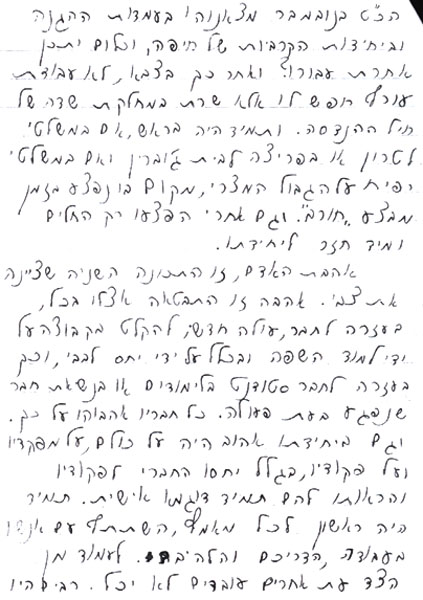 הכ"ט בנובמבר מצאנוהו בעמדות ההגנה
וביחידות הקרביות של חיפה, וכלום יתכן
אחרת עבורו? ואחר כך בצבא, לא עבודת
עורף חופש לו אלא שרת במחלקת שדה של
חיל ההנדסה. ותמיד היה בראש, אם במשלטי
לטרון או בפריצה לבית ג'וברין ואם במשלטי
רפיח על הגבול המצרי, מקום בו נפצע בזמן
מבצע "חורב". וגם אחרי הפצעו רק החלים
ומיד חזר ליחידתו.
אהבת האדם, זו התכונה השניה שציינה
את צבי. אהבה זו התבטאה אצלו בכל,
בעזרה לחבר, עולה חדש, להקלט בקבוצה על
ידי למוד השפה ובכלל על ידי יחס לבבי, וכן
בעזרה לחבר סטודנט בלימודים או בנשאת חבר
שנפגע בעת פעולה. כל חבריו אהבוהו על כך.
וגם ביחידתו אהוב היה על כולם, על מפקדיו
ועל פקודיו, בגלל יחסו החברי לפקודיו
והראותו להם תמיד דוגמא אישית. תמיד
היה ראשון לכל מאמץ, השתתף עם אנשיו
בעבודה, הדריכם והלהיבם. לעמוד מן
הצד עת אחרים עובדים לא יכל. רבים היו